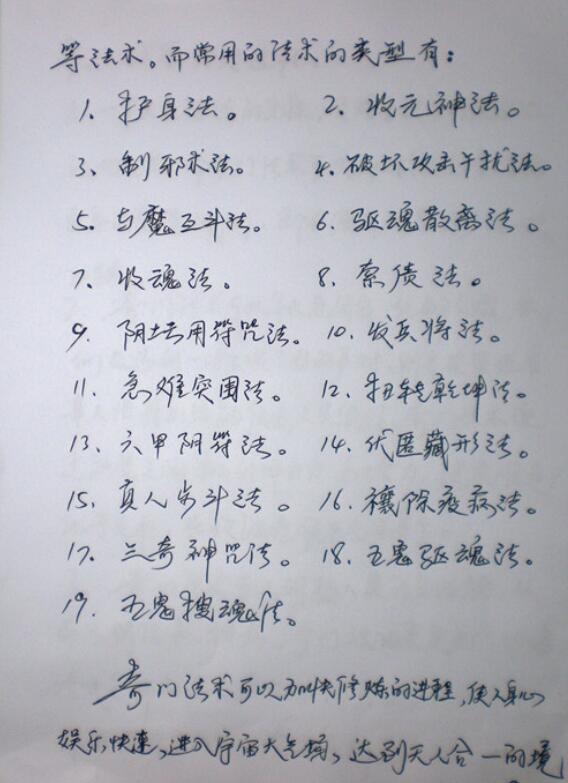 等法术。而常用的法术的类型有：
1、护身法。 2、收元神法。
3、制邪术法。 4、破坏攻击干扰法。
5、与魔互斗法。 6、驱魂散离法。
7、收魂法。 8、索债法。
9、阴坛用符咒法。 10、发兵将法。
11、急难突围法。 12、扭转乾坤法。
13、六甲阴符法。 14、伏匿藏形法。
15、真人步斗法。 16、禳除疫病法。
17、三奇神咒法。 18、五鬼驱魂法。
19、五鬼搜魂法。
奇门法术可以加快修炼的进程，使人身心
娱乐，快速，进入宇宙大气场，达到天人合一的境